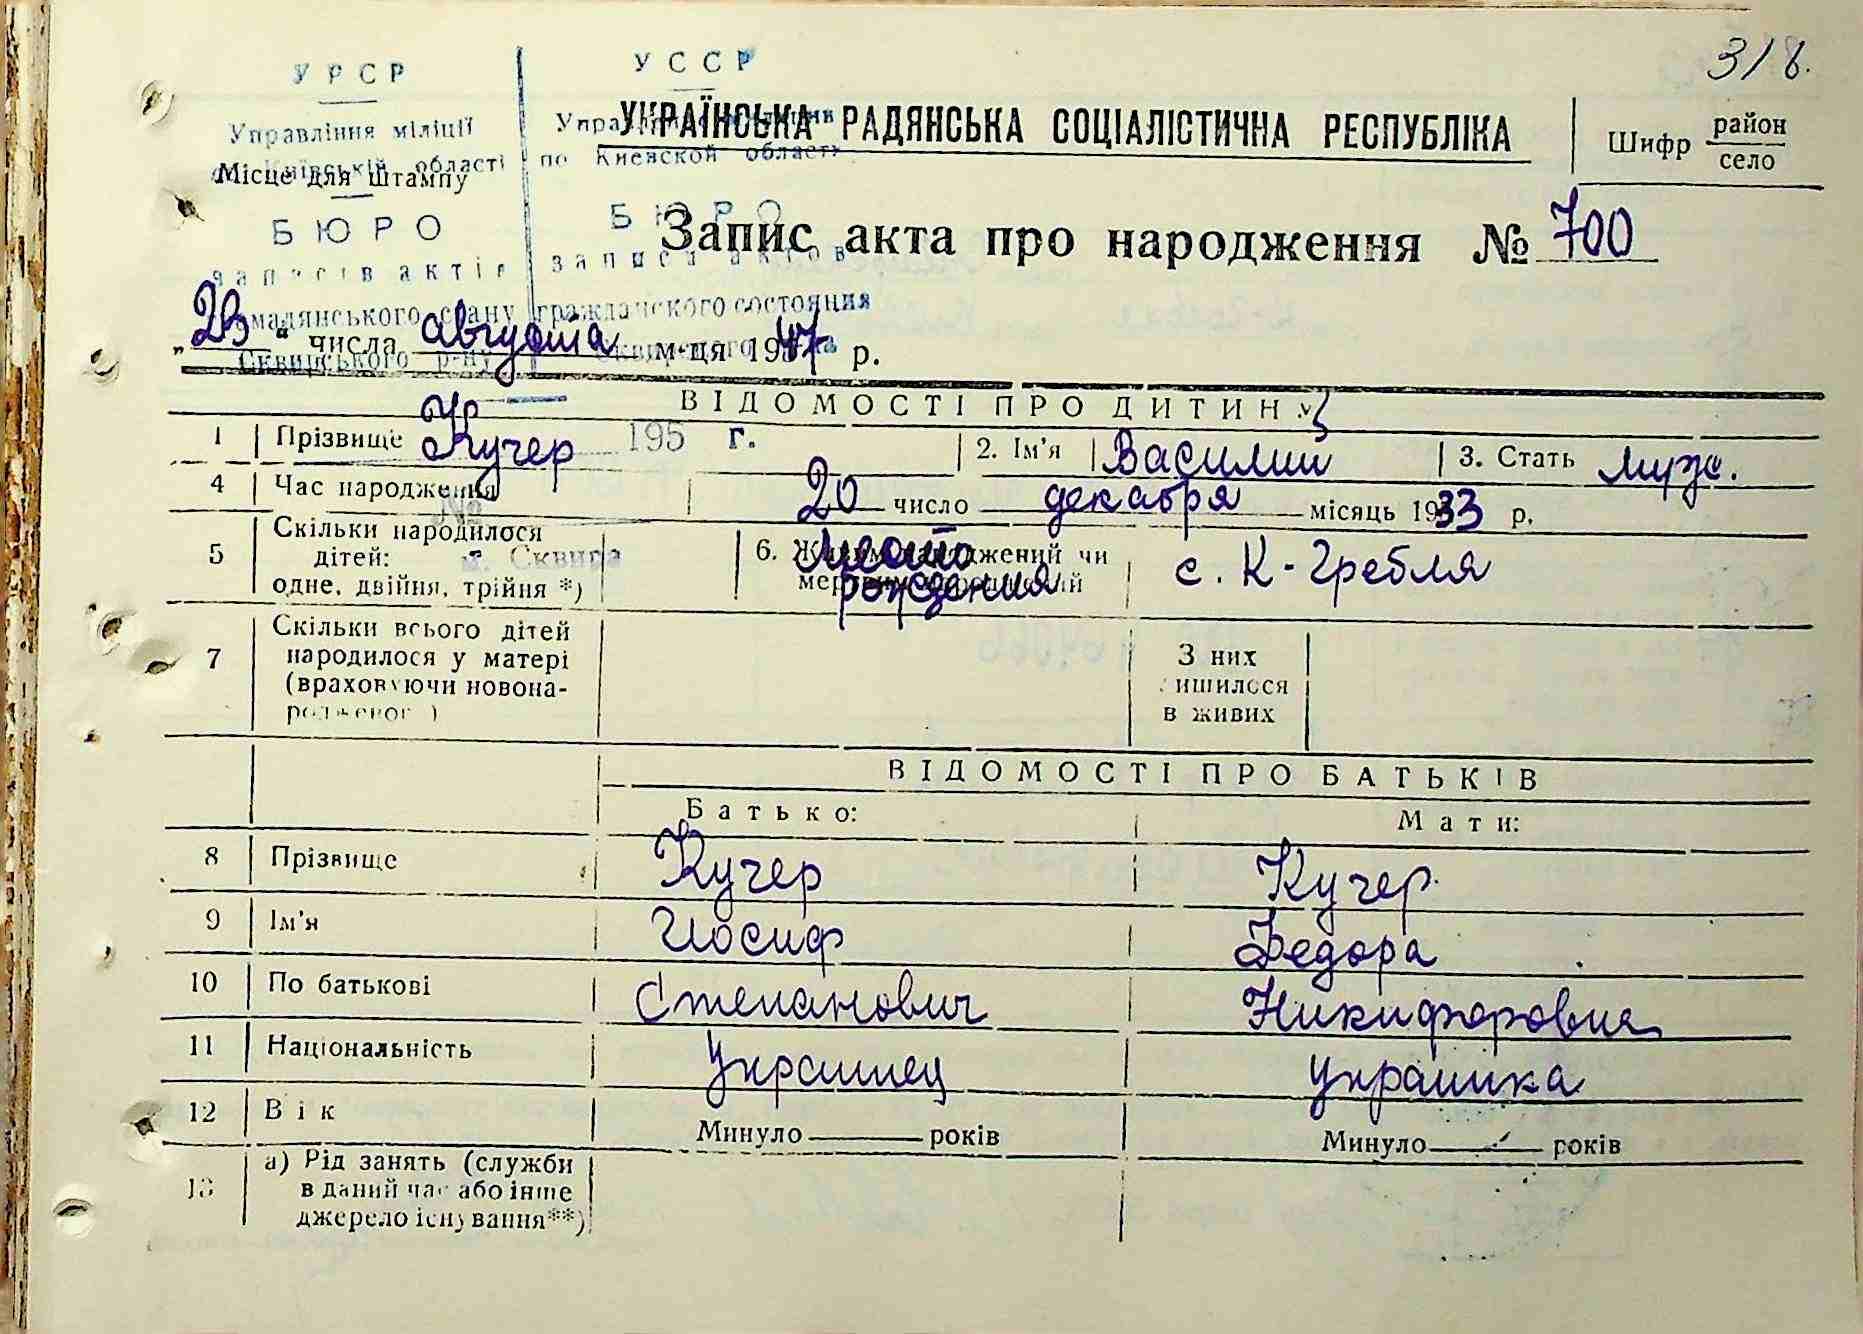 318.
УРСР
УССР
Управління міліції
Київській області
по Киевской области
Місце для штампу
УКРАЇНСЬКА РАДЯНСЬКА СОЦІАЛІСТИЧНА РЕСПУБЛІКА
Шифр район
село
БЮРО
БЮРО
записів актів
записи актов
Запис акта про народження № 700
громадянського стану
гражданского состояния
Сквирського р-ну
„23" числа августа м-ця 1947 р.
ВІДОМОСТІ ПРО ДИТИНУ
1 Прізвище Кучер 195 г. 2. Ім'я Василий 3. Стать муж.
4 Час народження 20 число декабря місяць 1933 р.
№
м. Сквира
5 Скільки народилося
дітей:
одне, двійня, трійня *)
6. Живим народжений чи
Место
рождения
с. К-Гребля
7 Скільки всього дітей
народилося у матері
(враховуючи новона-
родженого)
З них
лишилося
в живих
ВІДОМОСТІ ПРО БАТЬКІВ
Батько: Мати:
8 Прізвище Кучер Кучер
9 Ім'я Иосиф Федора
10 По батькові Степанович Никифоровна
11 Національність Украинец украинка
12 Вік Минуло років Минуло років
13 а) Рід занять (служби
в даний час або інше
джерело існування**)